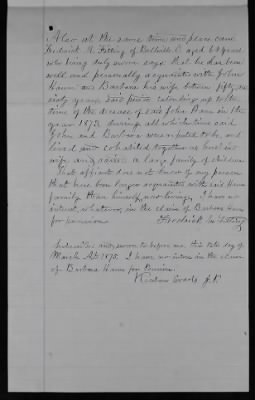 Also at the same time and place came
Fredrick M. Fitting of Bellville O. aged 64 years
who being duly sworn says that he has been
well and personally acquainted with John
Hamm and Barbara his wife between fifty and
sixty years, said
time of the decease of said John Hamm in the
year 1873, during all which time said
John and Barbara were reputed to be, and
lived and cohabited together as husband
wife and raised a large family of children
That affiant does not know of any person
that have been longer acquainted with said Hamm
family than himself, now living; I have no
interest, whatever, in the claim of Barbara Hamm
for pension. Fredrick M. Fitting
Subscribed and sworn to before me, this 10th day of
March AD. 1875. I have no interest in the claim
of Barbara Hamm for Pension.
J.P.